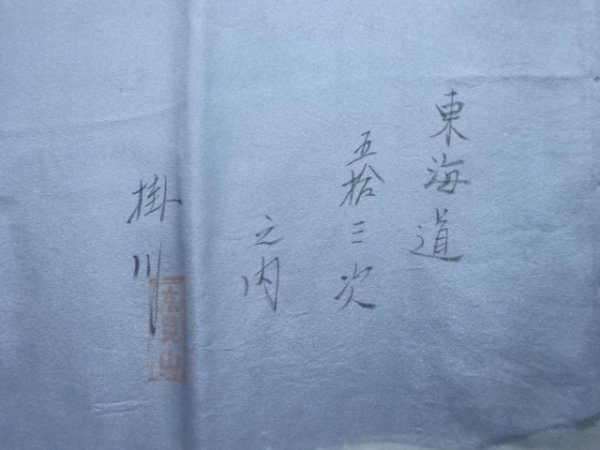 東海道
五拾三次
之内
掛川